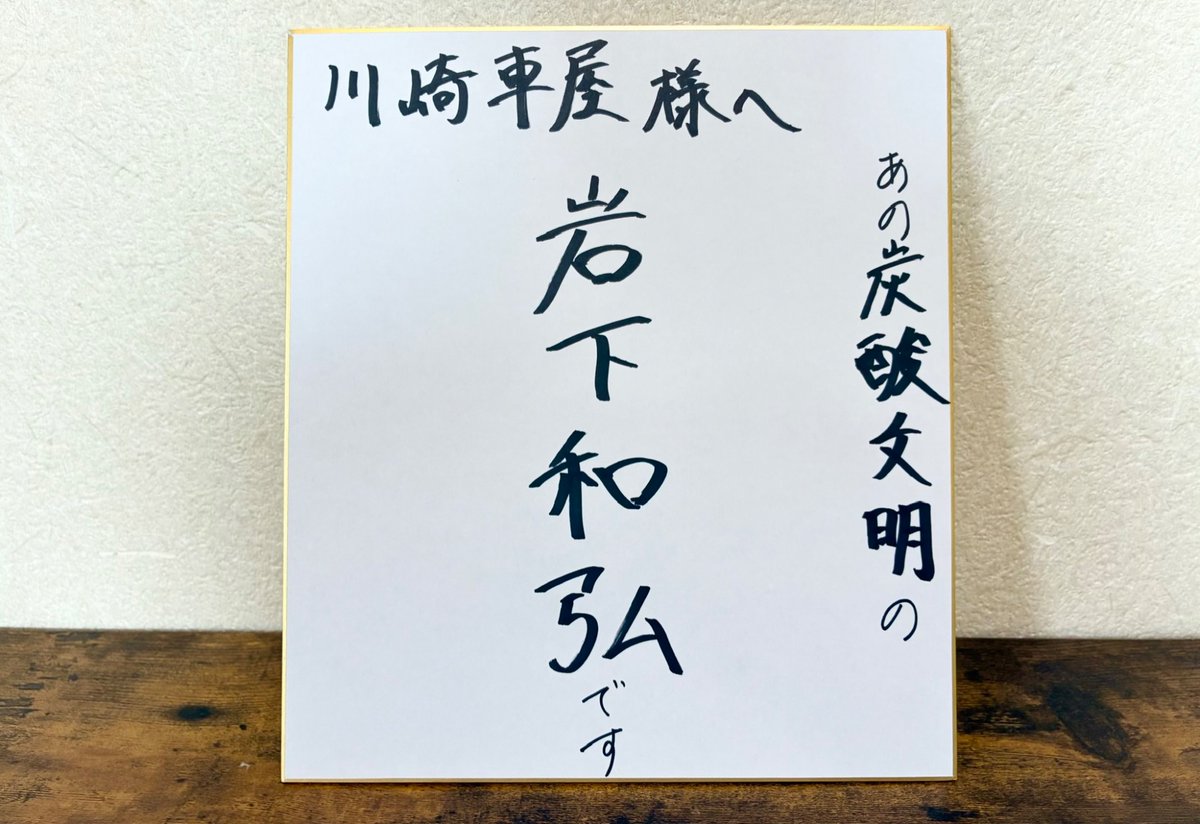 川崎車屋様へ
あの炭酸文明の
岩下和弘です